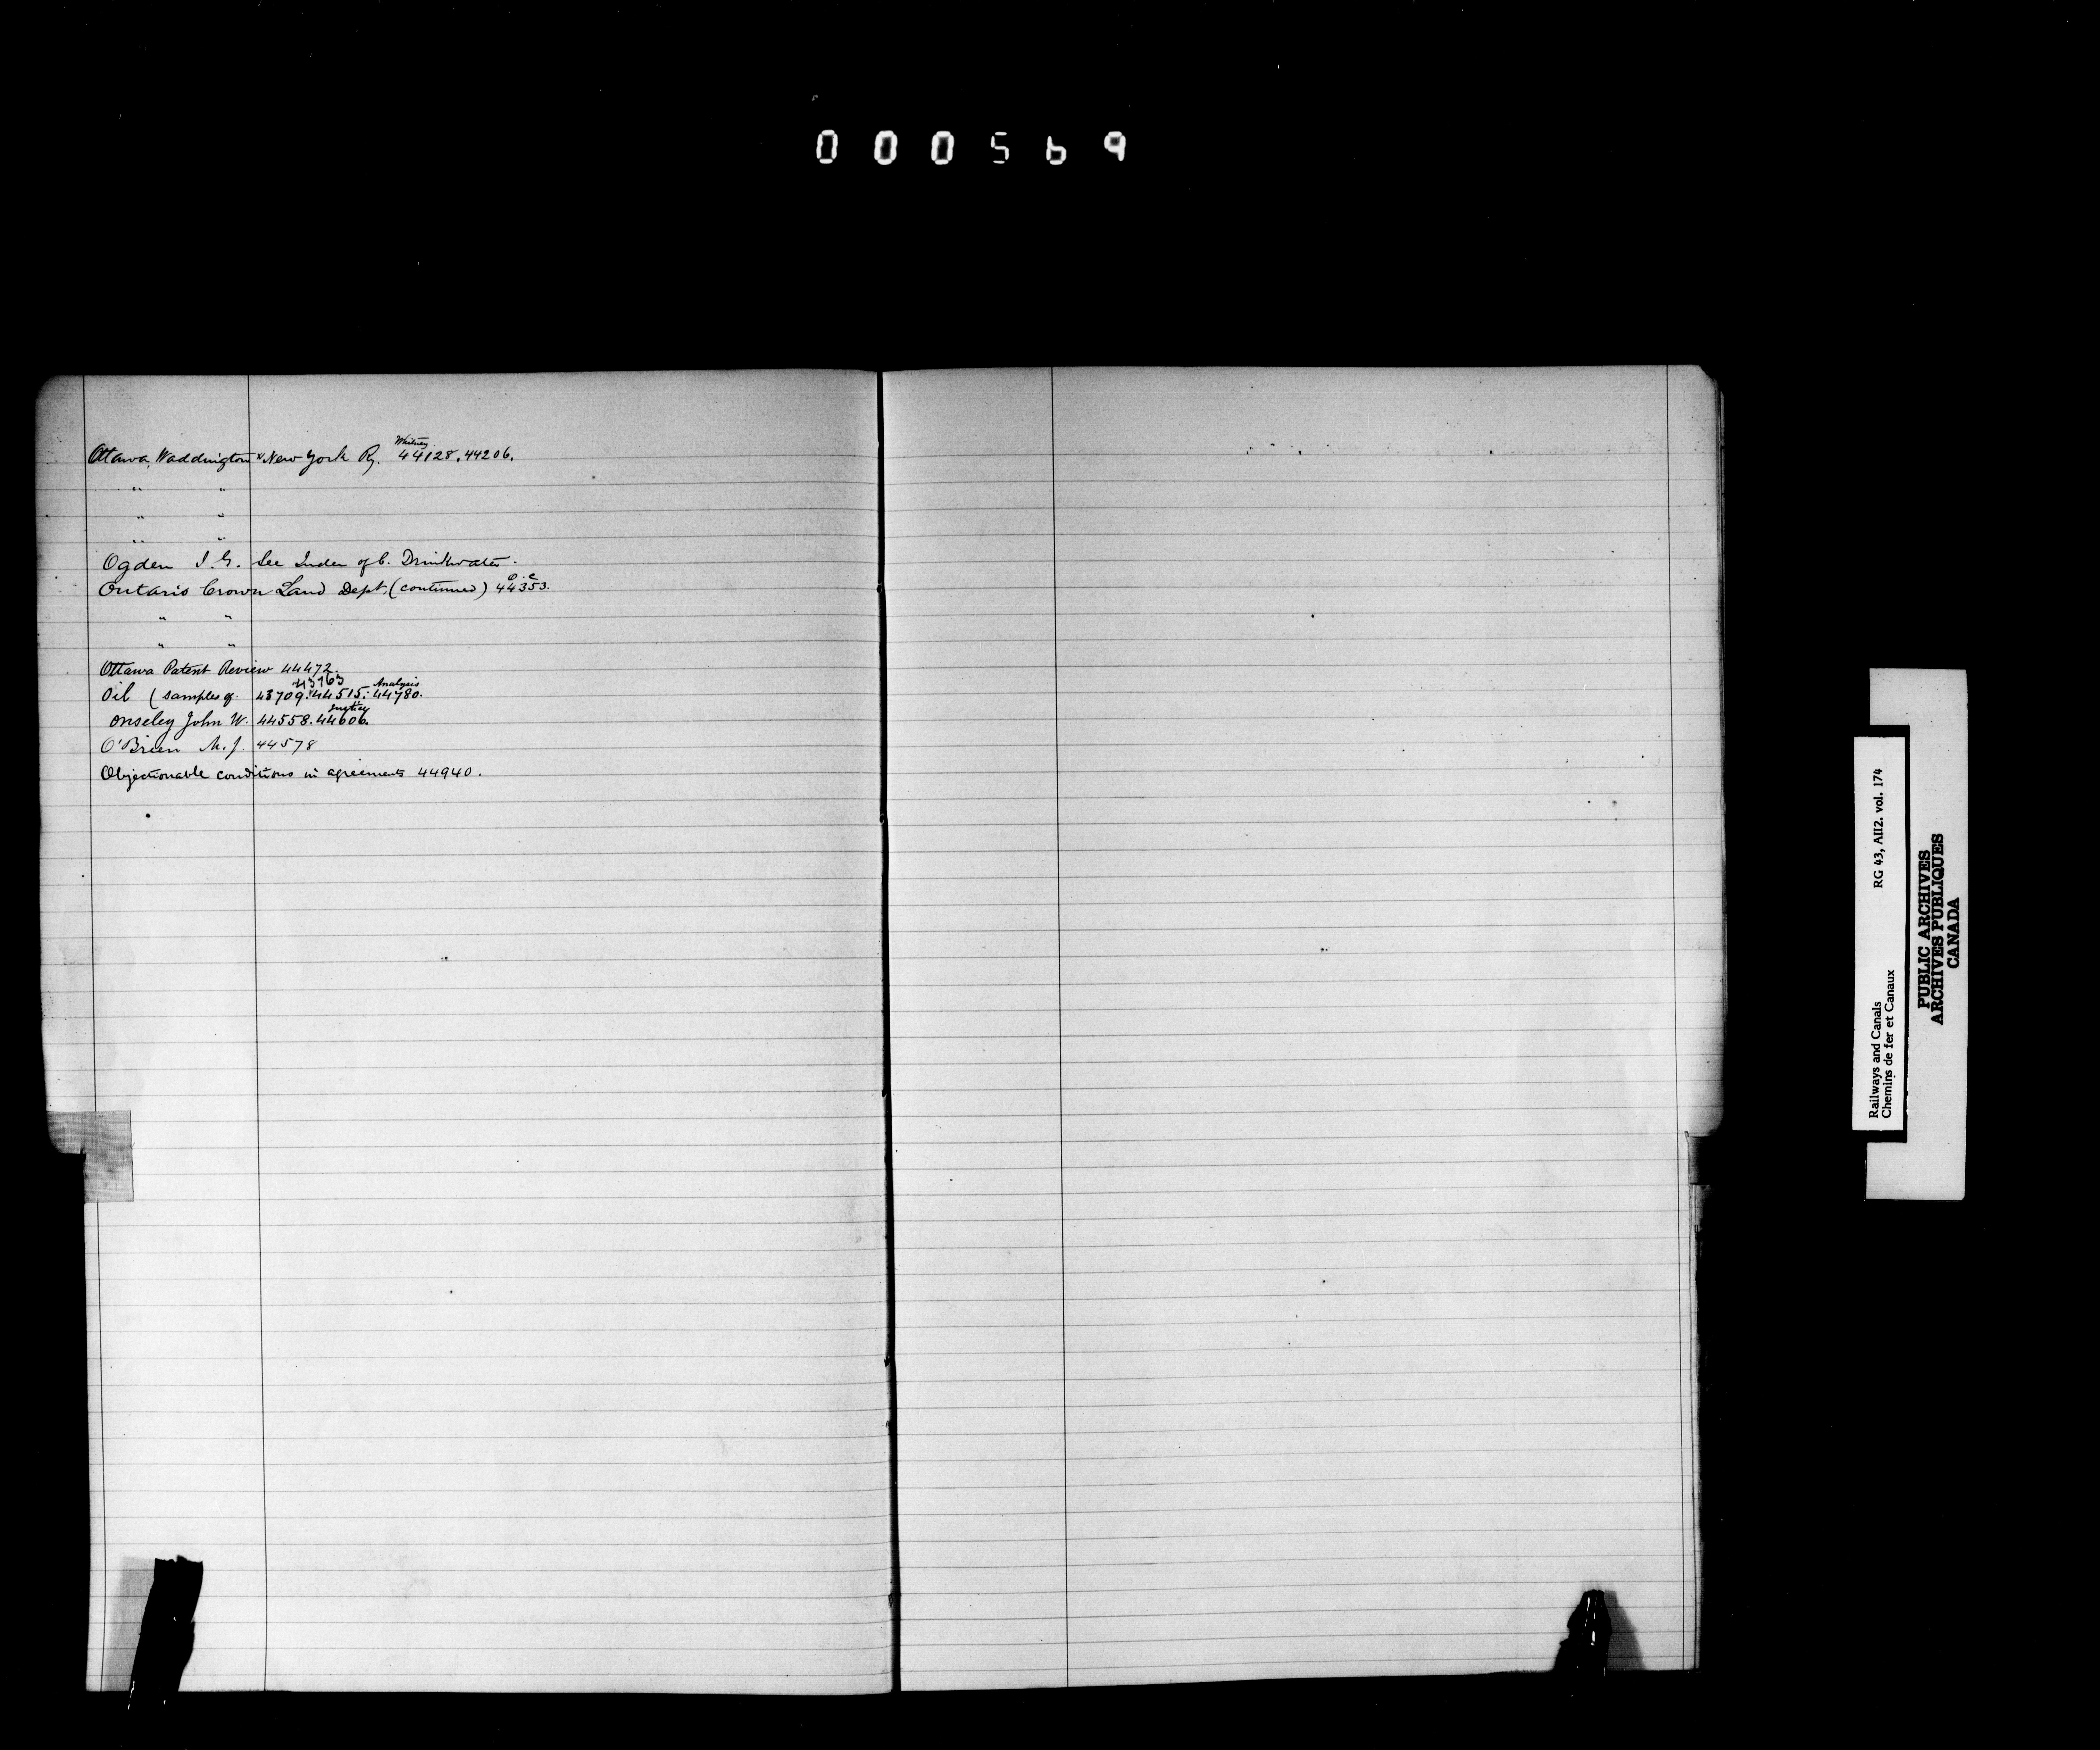 000569
Whitney
Ottawa, Waddington & New York Ry. 44128. 44206.
" "
" "
" "
Ogden I. G. See Index of C. Drinkwater.
O. C.
Ontario Crown Land Dept. (continued) 44353.
" "
" "
Ottawa Patent Review 44472.
43763 Analysis
Oil (samples of 43709. 44515. 44780.
Justice
Onseley John W. 44558. 44606.
O'Brien M. J. 44578
Objectionable conditions in agreements 44940.
Railways and Canals RG 43, AII2. vol. 174
Chemins de fer et Canaux
PUBLIC ARCHIVES
ARCHIVES PUBLIQUES
CANADA